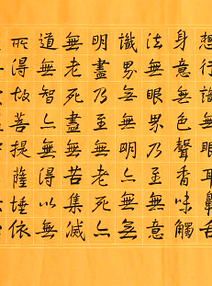 想行識無眼耳鼻舌
身意無色聲香味觸
法無眼界乃至無意
識界無無明亦無無
明盡乃至無老死亦
無老死盡無苦集滅
道無智亦無得以無
所得故菩提薩埵依